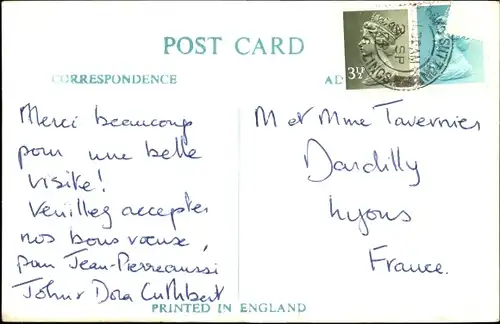 POST CARD
CORRESPONDENCE
AD
3½P
Merci beaucoup
pour une belle
visite!
Veuillez accepter
nos bons voeux,
pour Jean-Pierre aussi
John & Dora Cuthbert
M et Mme Tavernier
Dardilly
Lyons
France.
PRINTED IN ENGLAND